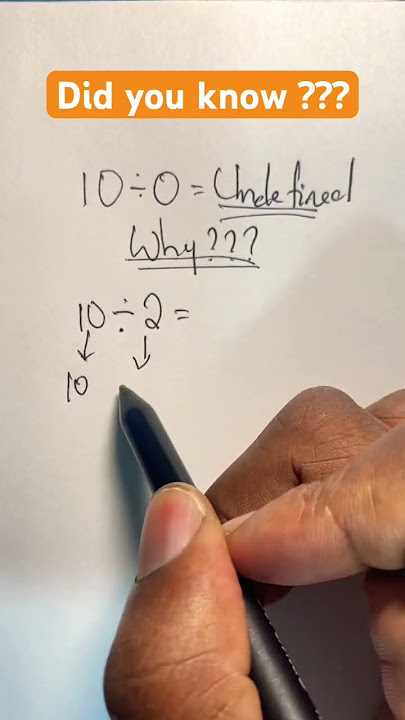 Did you know ???
10÷0 = Undefined
Why???
10÷2 =
↓ ↓
10